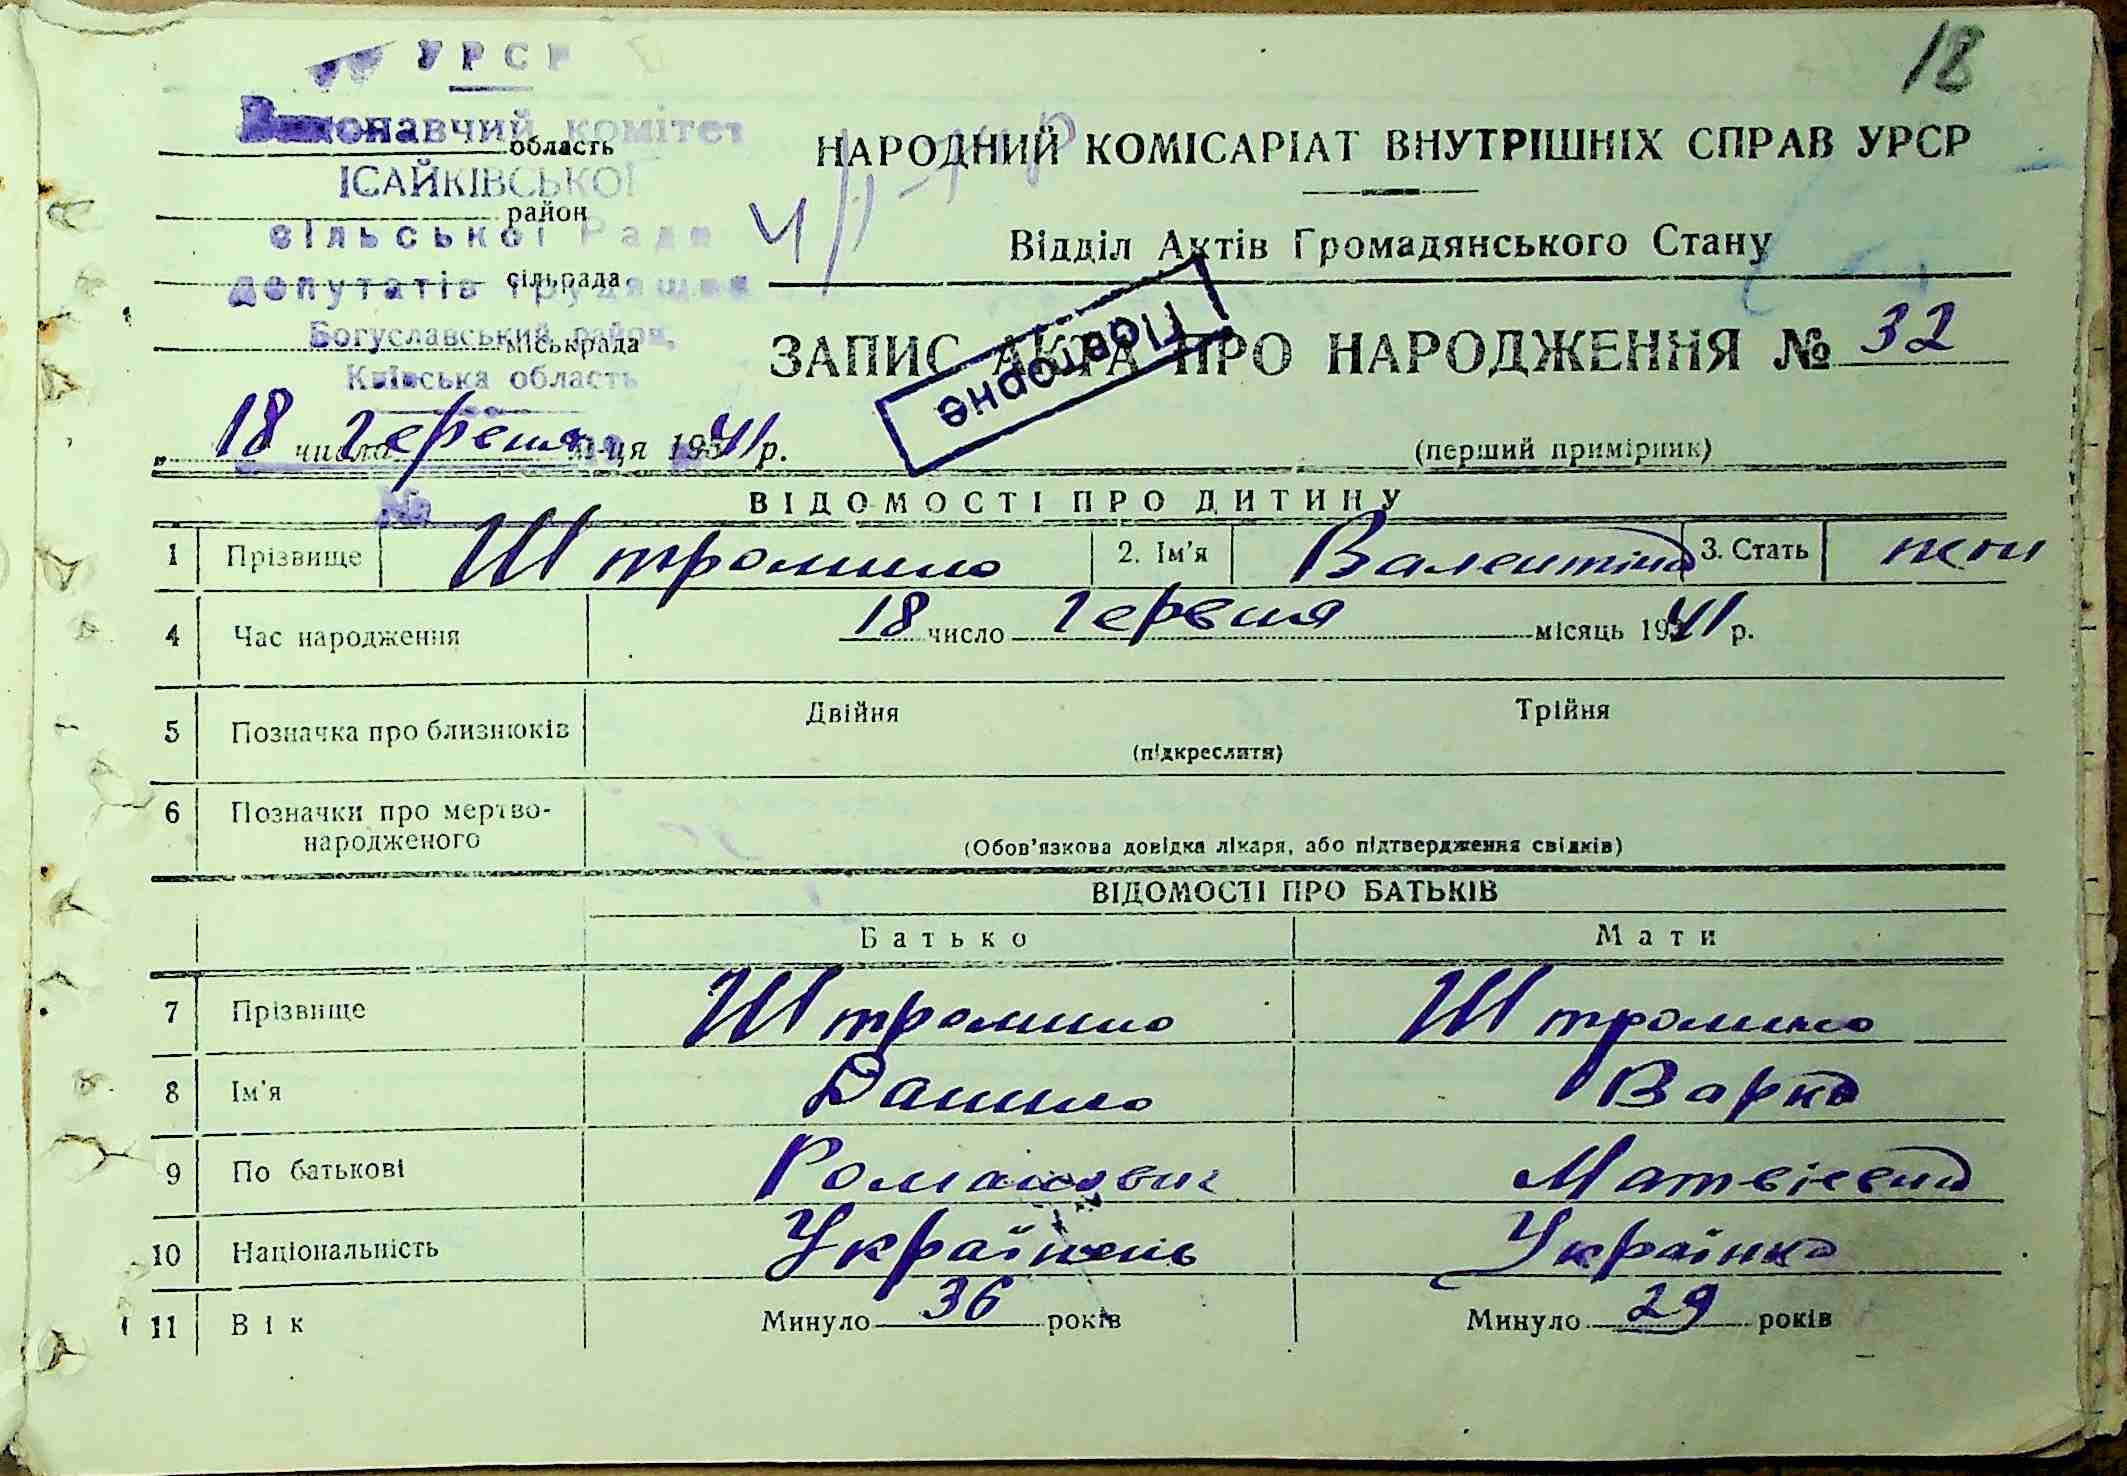 18
УРСР
Виконавчий комітет
область
ІСАЙКІВСЬКОЇ
район
сільської Ради
сільрада
депутатів трудящих
Богуславський район,
міськрада
Київська область
НАРОДНИЙ КОМІСАРІАТ ВНУТРІШНІХ СПРАВ УРСР
Відділ Актів Громадянського Стану
ЗАПИС АКТА ПРО НАРОДЖЕННЯ № 32
Повторне
„ 18 число Червня м-ця 1941 р.
(перший примірник)
№
ВІДОМОСТІ ПРО ДИТИНУ
1 Прізвище Штромило 2. Ім'я Валентина 3. Стать жін
4 Час народження 18 число Червня місяць 1941 р.
5 Позначка про близнюків Двійня Трійня
(підкреслити)
6 Позначки про мертво-
народженого
(Обов'язкова довідка лікаря, або підтвердження свідків)
ВІДОМОСТІ ПРО БАТЬКІВ
Батько Мати
7 Прізвище Штромило Штромило
8 Ім'я Данило Варка
9 По батькові Романович Матвієвна
10 Національність Українець Українка
11 Вік Минуло 36 років Минуло 29 років